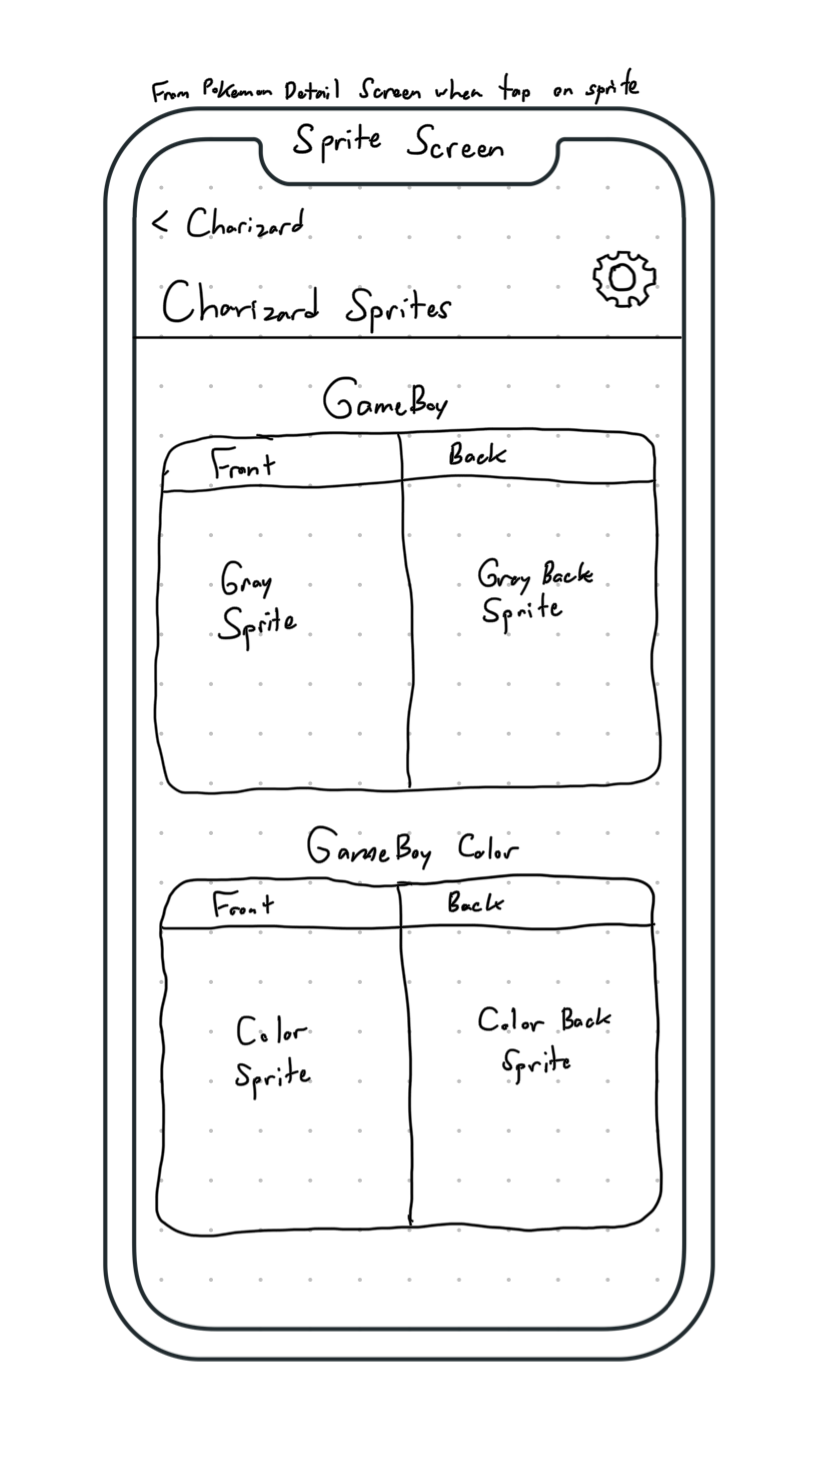 From Pokemon Detail Screen when tap on sprite
Sprite Screen
< Charizard
Charizard Sprites
GameBoy
Front Back
Gray
Sprite
Grey Back
Sprite
GameBoy Color
Front Back
Color
Sprite
Color Back
Sprite